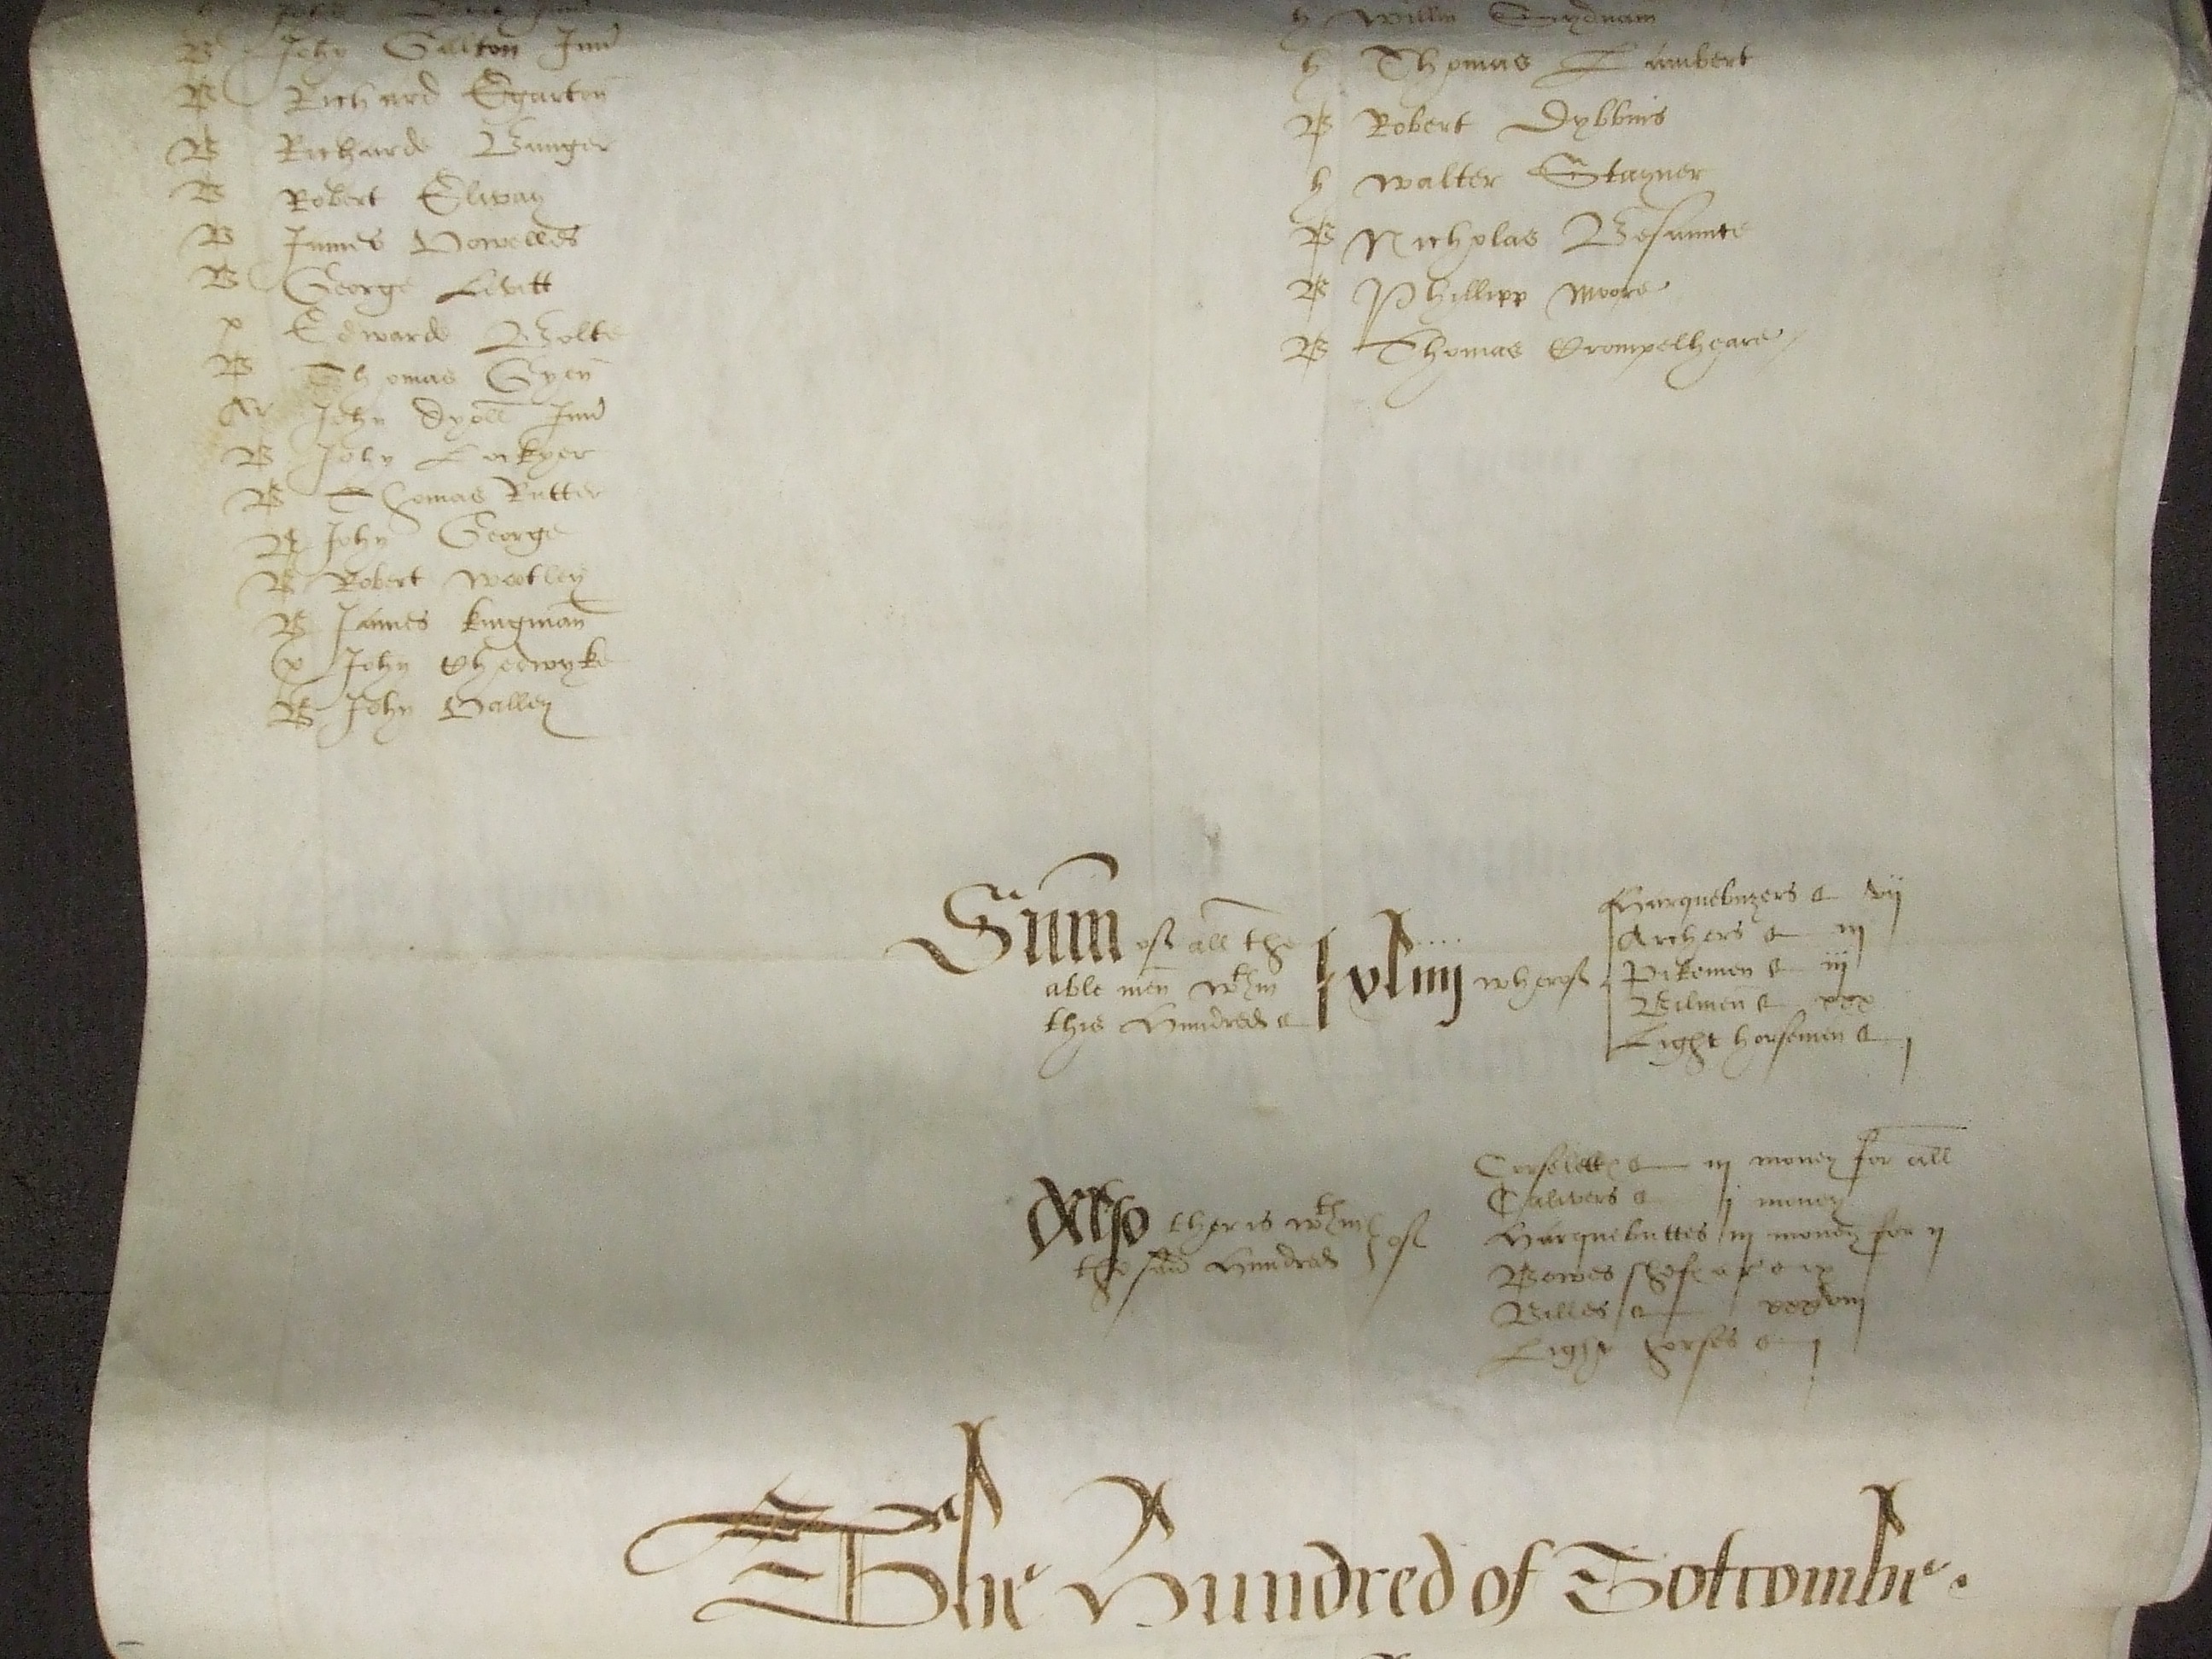 B John Galton Jun
B Richard Egarton
B Richarde Bunger
B Robert Elway
B James Howelles
B George Levitt
p Edwarde Bolte
B Thomas Gyen
Ar John Dyoll Jun
B John Lockyer
B Thomas Rutter
B John George
B Robert Wootley
B James Kingman
p John Chedwyke
B John Galley
h Willm Sydnam
h Thomas Lambert
B Robert Dybbins
h Walter Stayner
B Nicholas Besunnte
B Phillipp Moore
B Thomas Crompelheare
Sum of all the able men wthin this Hundred xliiij wherof
Harquebuzers vij
Archers iij
Pikemen iij
Bilmen xxx
Light horsemen j
Also ther is wthin the said Hundred of
Corselettes iij money for all
Calivers j money
Harquebuttes iij money for ij
Bowes shefe ar ix
Billes xxxviij
Light horses j
The Hundred of Totcombe.